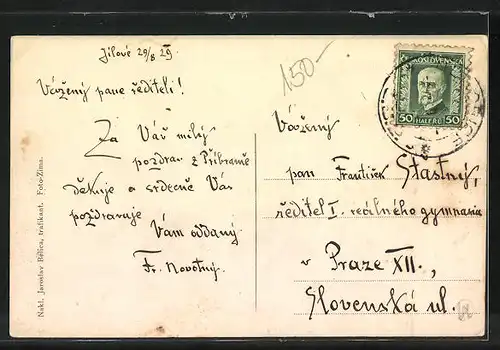 Jílové 29/8 29
150-
Vážený pane řediteli!
Za Váš milý
pozdrav z Příbramě
děkuje a srdečně Vás
pozdravuje
Vám oddaný
Fr. Novotný.
ČESKOSLOVENSKÁ
50 HALÉŘŮ 50
Vážený
pan František Šťastný,
ředitel I. reálného gymnasia
v Praze XII.,
Slovenská ul.
Nakl. Jaroslav Bělica, trafikant. Foto-Zima.